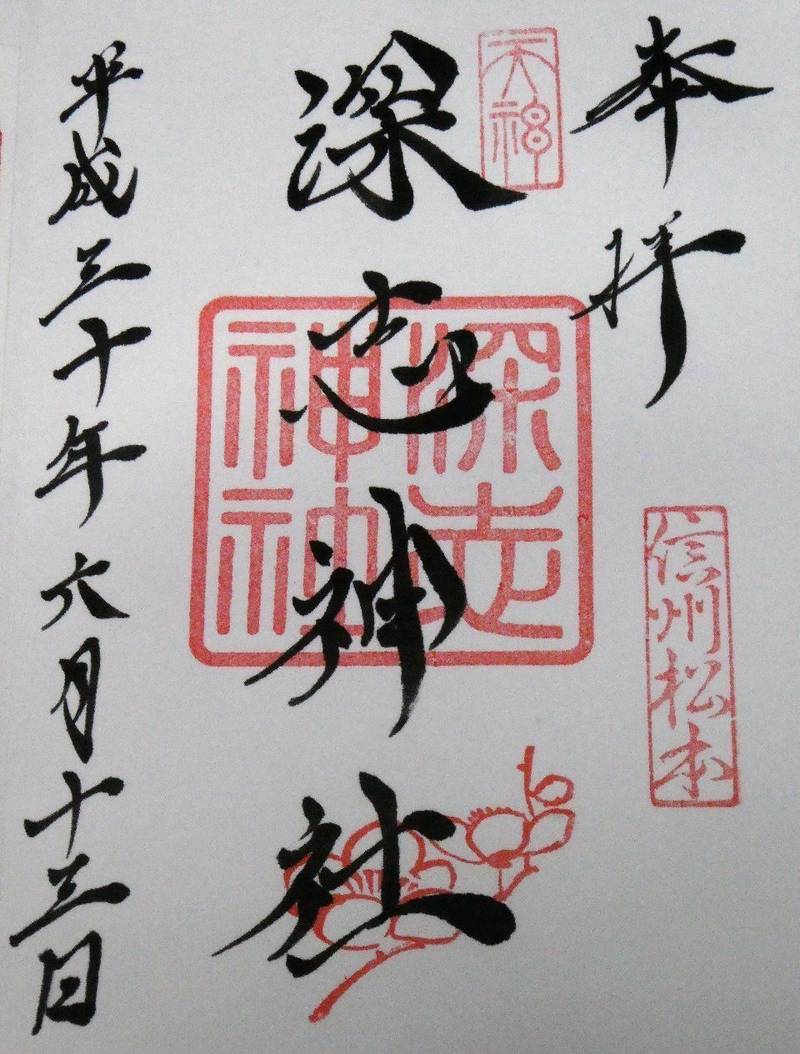 奉拝
信州松本
天神
深志神社
深志
神社
平成三十年六月十三日